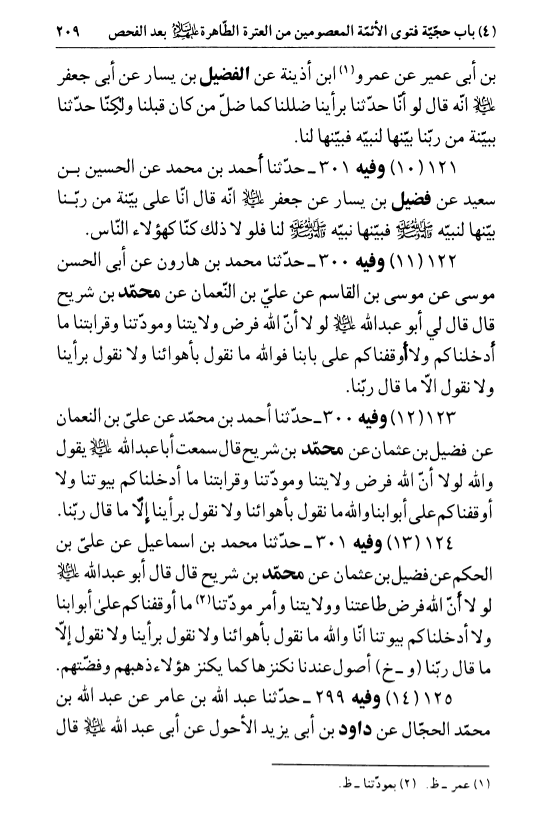 (٤) باب حجّيّة فتوى الأئمّة المعصومين من العترة الطّاهرة عليهم السلام بعد الفحص ٢٠٩
بن أبى عمير عن عمرو(١) ابن أذينة عن الفضيل بن يسار عن أبي جعفر
عليه السلام انّه قال لو أنّا حدّثنا برأينا ضللنا كما ضلّ من كان قبلنا ولٰكِنّا حدّثنا
ببيّنة من ربّنا بيّنها لنبيّه فبيّنها لنا.
١٢١ (١٠) وفيه ٣٠١ ـ حدّثنا أحمد بن محمد عن الحسين بـن
سعيد عن فضيل بن يسار عن جعفر عليه السلام انه قال انّا على بيّنة من ربّـنا
بيّنها لنبيّه صلى الله عليه وآله فبيّنها نبيّه صلى الله عليه وآله لنا فلو لا ذلك كنّا كهؤلاء النّاس.
١٢٢ (١١) وفيه ٣٠٠ ـ حدّثنا محمد بن هارون عن أبى الحسن
موسى عن موسى بن القاسم عن عليّ بن النّعمان عن محمّد بن شريح
قال قال لي أبو عبدالله عليه السلام لو لا أنّ الله فرض ولايتنا ومودّتنا وقرابتنا ما
أدخلناكم ولا أوقفناكم على بابنا فوالله ما نقول بأهوائنا ولا نقول برأينا
ولا نقول الّا ما قال ربّنا.
١٢٣ (١٢) وفيه ٣٠٠ ـ حدّثنا أحمد بن محمّد عن علىّ بن النعمان
عن فضيل بن عثمان عن محمّد بن شريح قال سمعت أبا عبدالله عليه السلام يقول
والله لولا أنّ الله فرض ولايتنا ومودّتنا وقرابتنا ما أدخلناكم بيوتنا ولا
أوقفناكم على أبوابنا والله ما نقول بأهوائنا ولا نقول برأينا إلّا ما قال ربّنا.
١٢٤ (١٣) وفيه ٣٠١ ـ حدّثنا محمد بن اسماعيل عن علىّ بن
الحكم عن فضيل بن عثمان عن محمّد بن شريح قال قال أبو عبدالله عليه السلام
لو لا أنّ الله فرض طاعتنا وولايتنا وأمر مودّتنا(٢) ما أوقفناكم علىٰ أبوابنا
ولا أدخلناكم بيوتنا انّا والله ما نقول بأهوائنا ولا نقول برأينا ولا نقول إلّا
ما قال ربّنا (و ـ خ) أصول عندنا نكنزها كما يكنز هؤلاء ذهبهم وفضّتهم.
١٢٥ (١٤) وفيه ٢٩٩ ـ حدّثنا عبد الله بن عامر عن عبد الله بن
محمّد الحجّال عن داود بن أبى يزيد الأحول عن أبى عبد الله عليه السلام قال
(١) عمر ـ ظ. (٢) بمودّتنا ـ ظ.